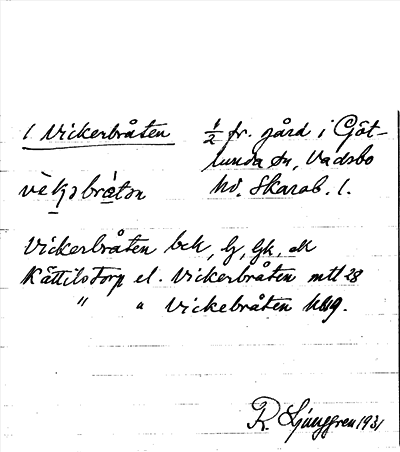 1 Vickerbråten
½ fr. gård i Göt-
lunda sn, Vadsbo
hd. Skarab. l.
Vickerbråten bck, lj, ljk, ek
Kättilstorp el. Vickerbråten mtl 28
" " Vickebråten hldg.
R. Ljunggren 1931